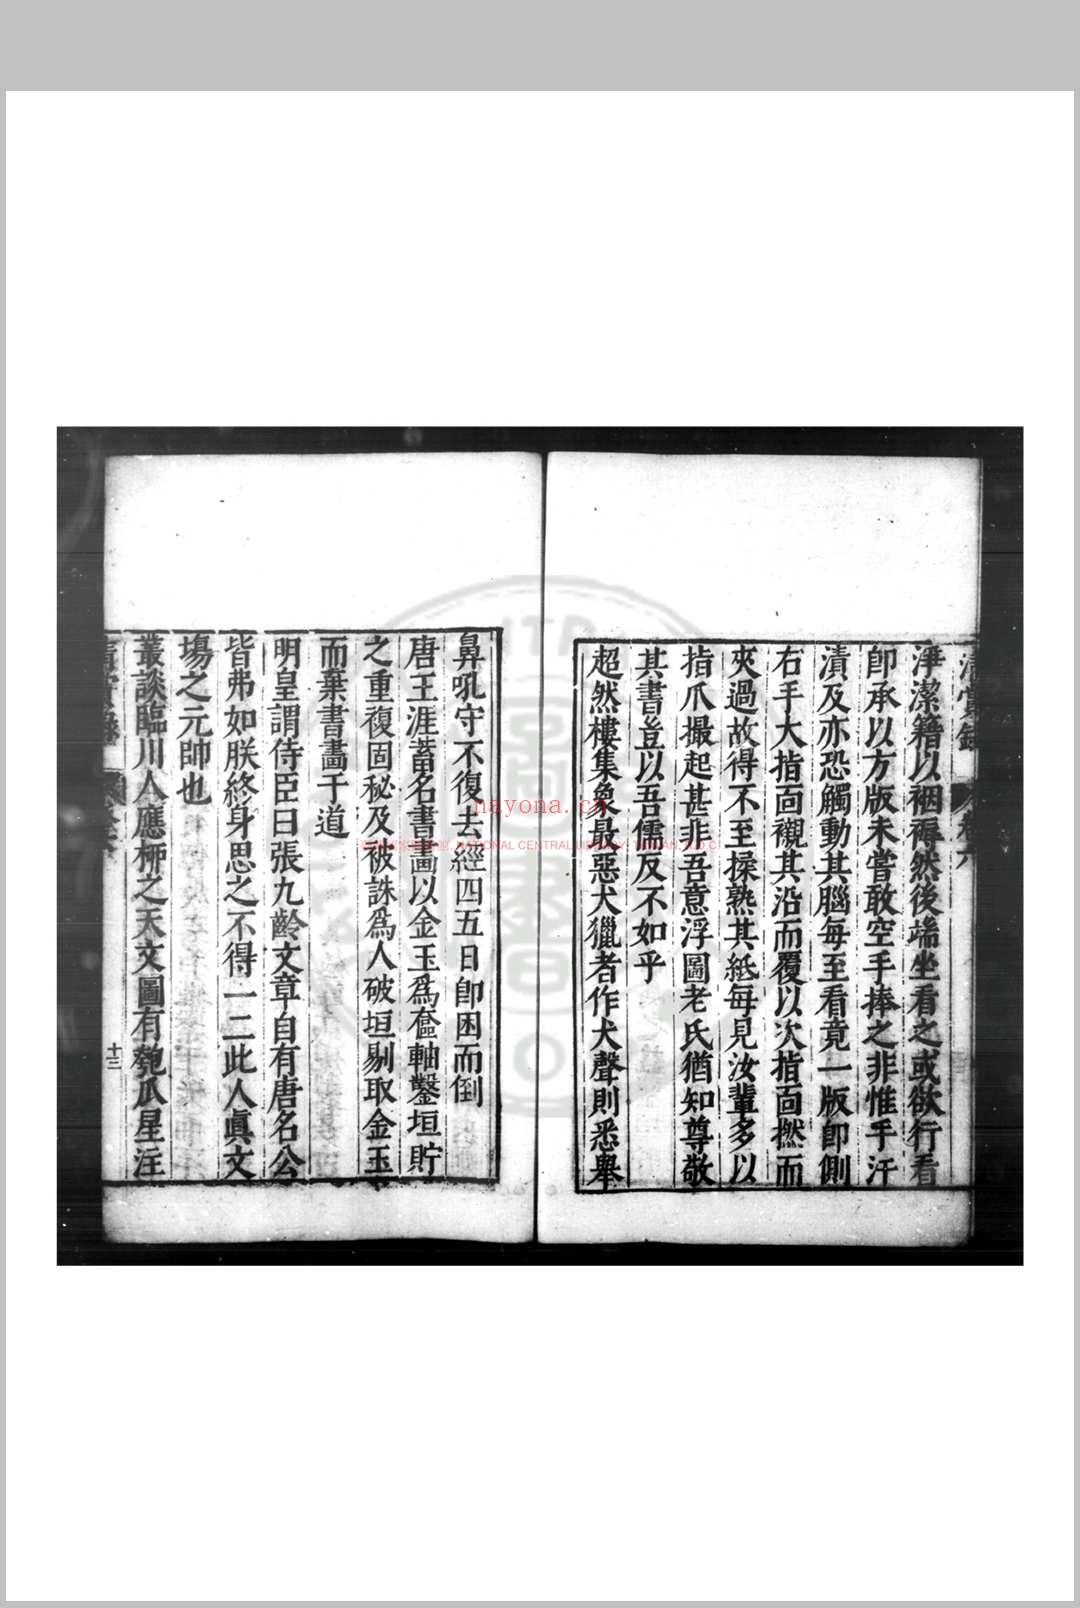 淨潔籍以裀褥然後端坐看之或欲行看
卽承以方版未嘗敢空手捧之非惟手汗
漬及亦恐觸動其腦每至看竟一版卽側
右手大指面襯其沿而覆以次指面撚而
夾過故得不至揉熟其紙每見汝輩多以
指爪撮起甚非吾意浮圖老氏猶知尊敬
其書豈以吾儒反不如乎
超然樓集象最惡犬獵者作犬聲則悉舉
鼻吼守不復去經四五日卽困而倒
唐王涯蓄名書畵以金玉爲奩軸鑿垣貯
之重複固秘及被誅爲人破垣剔取金玉
而棄書畵于道
明皇謂侍臣曰張九齡文章自有唐名公
皆弗如朕終身思之不得一二此人眞文
場之元帥也
叢談臨川人應桺之天文圖有匏瓜星注
十三
nayona.cn
NATIONAL CENTRAL LIBRARY, TAIWAN, R.O.C